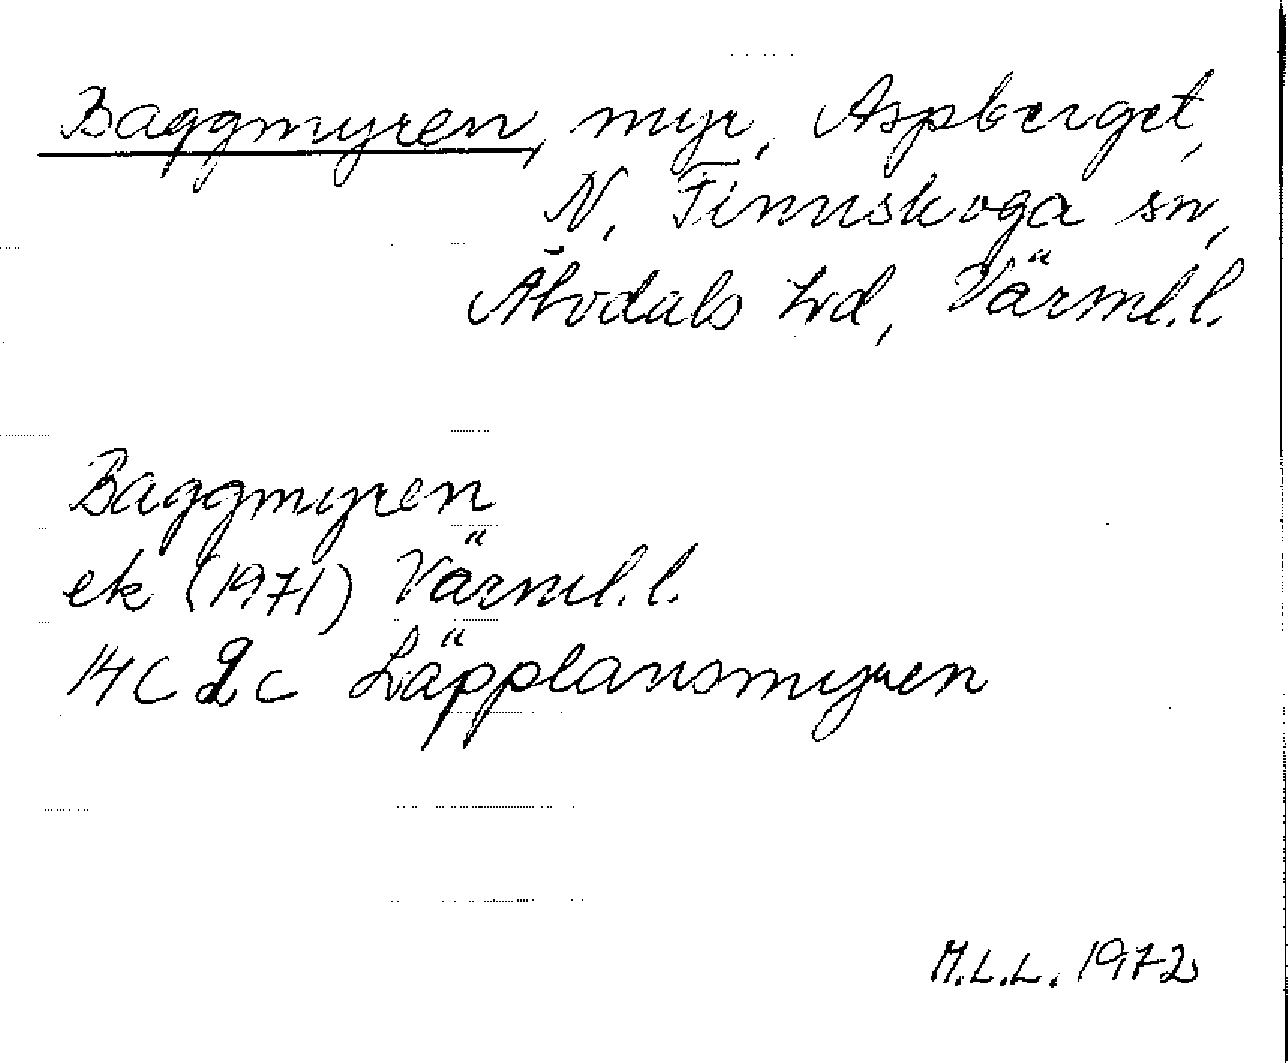 Baggmyren, myr, Aspberget,
N. Finnskoga sn,
Älvdals hd, Värml.l.
Baggmyren
ek (1971) Värml.l.
14c 2c Läpplansmyren
M.L.L. 1972